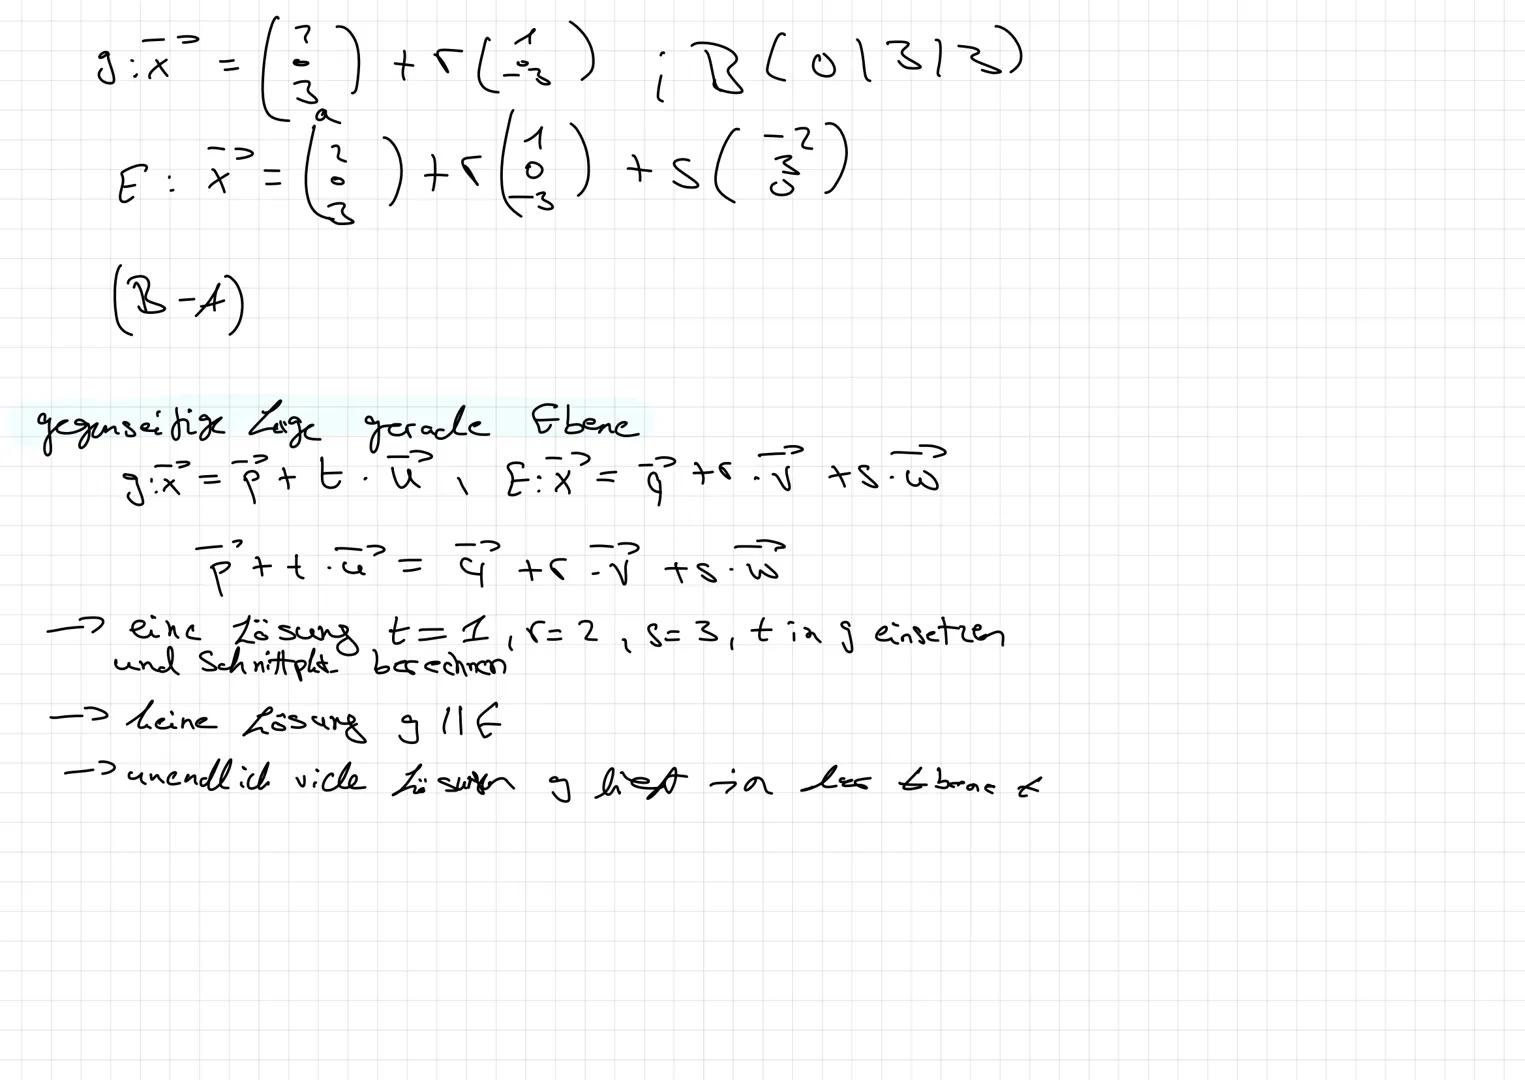 g: x⃗ = (2 0 3) + r (1 0 -3) ; B (0|3|3)
a
E: x⃗ = (2 0 3) + r (1 0 -3) + s (-2 3 0)
(B - A)
gegenseitige Lage gerade Ebene
g: x⃗ = p⃗ + t · u⃗ , E: x⃗ = q⃗ + r · v⃗ + s · w⃗
p⃗ + t · u⃗ = q⃗ + r · v⃗ + s · w⃗
→ eine Lösung t = 1, r = 2, s = 3, t in g einsetzen
und Schnittpkt. berechnen
→ keine Lösung g || E
→ unendlich viele Lösungen g liegt in der Ebene E